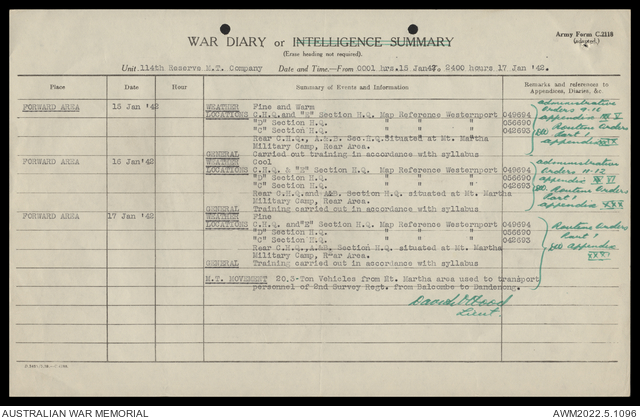 Army Form C.2118
(adapted.)
WAR DIARY or INTELLIGENCE SUMMARY
(Erase heading not required).
Unit. 114th Reserve M.T. Company Date and Time.—From 0001 hrs.15 Jan42 To 2400 hours 17 Jan '42.
Place Date Hour Summary of Events and Information Remarks and references to
Appendices, Diaries, &c.
FORWARD AREA 15 Jan '42 WEATHER Fine and Warm
LOCATIONS C.H.Q. and "E" Section H.Q. Map Reference Westernport 049694
"D" Section H.Q. " " " 056690
"C" Section H.Q. " " " 042693
Rear C.H.Q., A.& B. Sec.H.Q. Situated at Mt. Martha
Military Camp, Rear Area.
GENERAL Carried out training in accordance with syllabus
administrative
orders 9-10
appendix
Routine Orders
Part 1
appendix XXIX
FORWARD AREA 16 Jan '42 WEATHER Cool
LOCATIONS C.H.Q. & "E" Section H.Q. Map Reference Westernport 049694
"D" Section H.Q. " " " 056690
"C" Section H.Q. " " " 042693
Rear C.H.Q. and A&B. Section H.Q. situated at Mt. Martha
Military Camp, Rear Area.
GENERAL Training carried out in accordance with syllabus
administration
orders 11-12
appendix
Routine Orders
Part 1
appendix XXX
FORWARD AREA 17 Jan '42 WEATHER Fine
LOCATIONS C.H.Q. and"E" Section H.Q. Map Reference Westernport 049694
"D" Section H.Q. " " " 056690
"C" Section H.Q. " " " 042693
Rear C.H.Q.,A&B. Section H.Q. situated at Mt. Martha
Military Camp, Rear Area.
GENERAL Training carried out in accordance with syllabus
Routine Orders
Part 1
Appendix
XXXI
M.T. MOVEMENT 20.3-Ton Vehicles from Mt. Martha area used to transport
personnel of 2nd Survey Regt. from Balcombe to Dandenong.
Lieut.
AUSTRALIAN WAR MEMORIAL AWM2022.5.1096